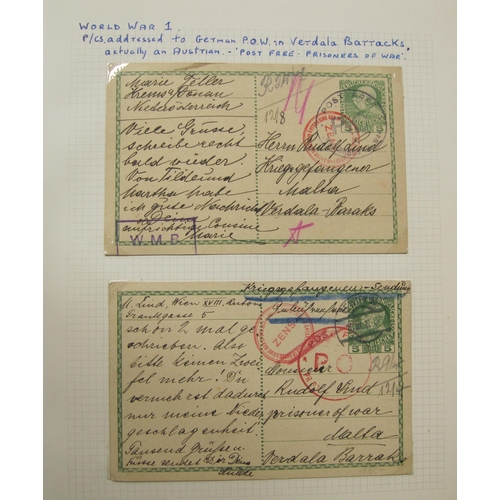 WORLD WAR 1.
P/CS. addressed to German P.O.W. in Verdala Barracks,
actually an Austrian. - 'POST FREE - PRISONERS OF WAR'.
Marie
Krems a/Donau
Niederösterreich
Viele Grüsse,
schreibe recht
bald wieder.
Von Tilde und
Martha habe
ich gute Nachricht
Deine
aufrichtige Cousine
Marie
W.M.B.
1218
5
ZENS
Herrn Rudolf Lind
Kriegsgefangener
Malta
Verdala-Baraks
Kriegsgefangenen-Sendung
M. Lind, Wien XVIII. Anton
Frankgasse 5
schon 2 mal ge-
schrieben. Also
bitte keinen Zwei-
fel mehr! Du
nur meine Nieder-
geschlagenheit.
Tausend Grüßen
5 5
ZENS
P O
Monsieur
Rudolf Lind
prisoner of war
Malta
Verdala Barraks